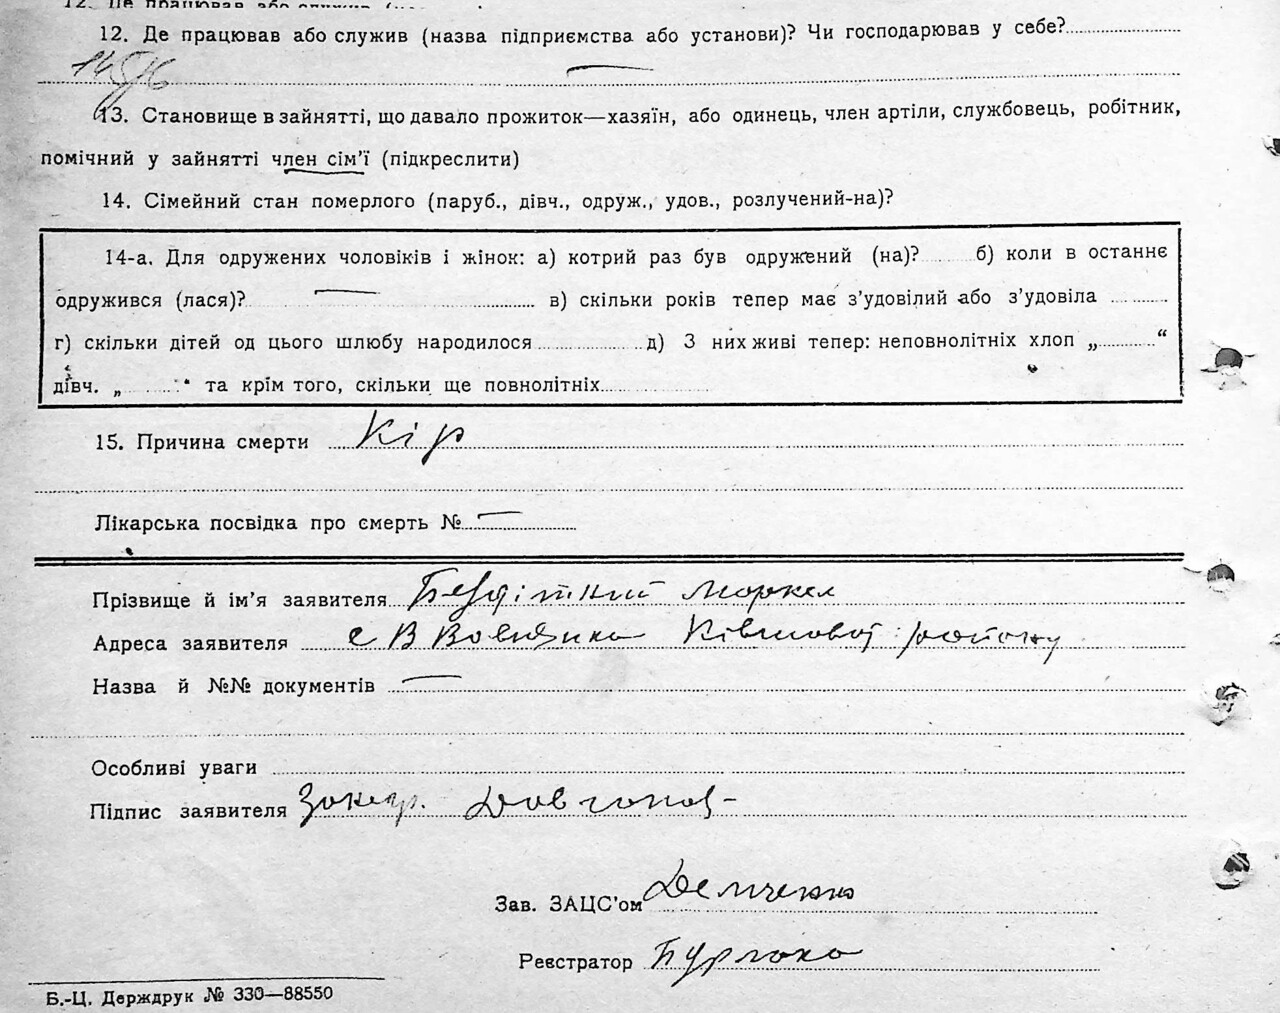 12. Де працював або служив (назва підприємства або установи)? Чи господарював у себе?
13. Становище в зайнятті, що давало прожиток—хазяїн, або одинець, член артіли, службовець, робітник,
помічний у зайнятті член сім'ї (підкреслити)
14. Сімейний стан померлого (паруб., дівч., одруж., удов., розлучений-на)?
14-а. Для одружених чоловіків і жінок: а) котрий раз був одружений (на)? б) коли в останнє
одружився (лася)? в) скільки років тепер має з'удовілий або з'удовіла
г) скільки дітей од цього шлюбу народилося д) З них живі тепер: неповнолітніх хлоп „ “
дівч. „ “ та крім того, скільки ще повнолітніх
15. Причина смерти Кір
Лікарська посвідка про смерть № —
Прізвище й ім'я заявителя Бездіткий Маркел
Адреса заявителя с В Вовнянка району
Назва й №№ документів —
Особливі уваги
Підпис заявителя
Зав. ЗАЦС'ом Демченко
Реєстратор Бурлака
Б.-Ц. Держдрук № 330—88550